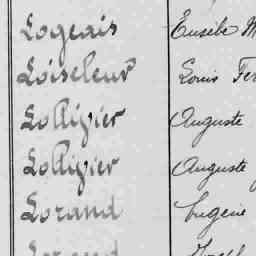 Logeais Eusèbe M
Loiseleur Louis Fer
Lollivier Auguste
Lollivier Auguste
Lorand Eugène